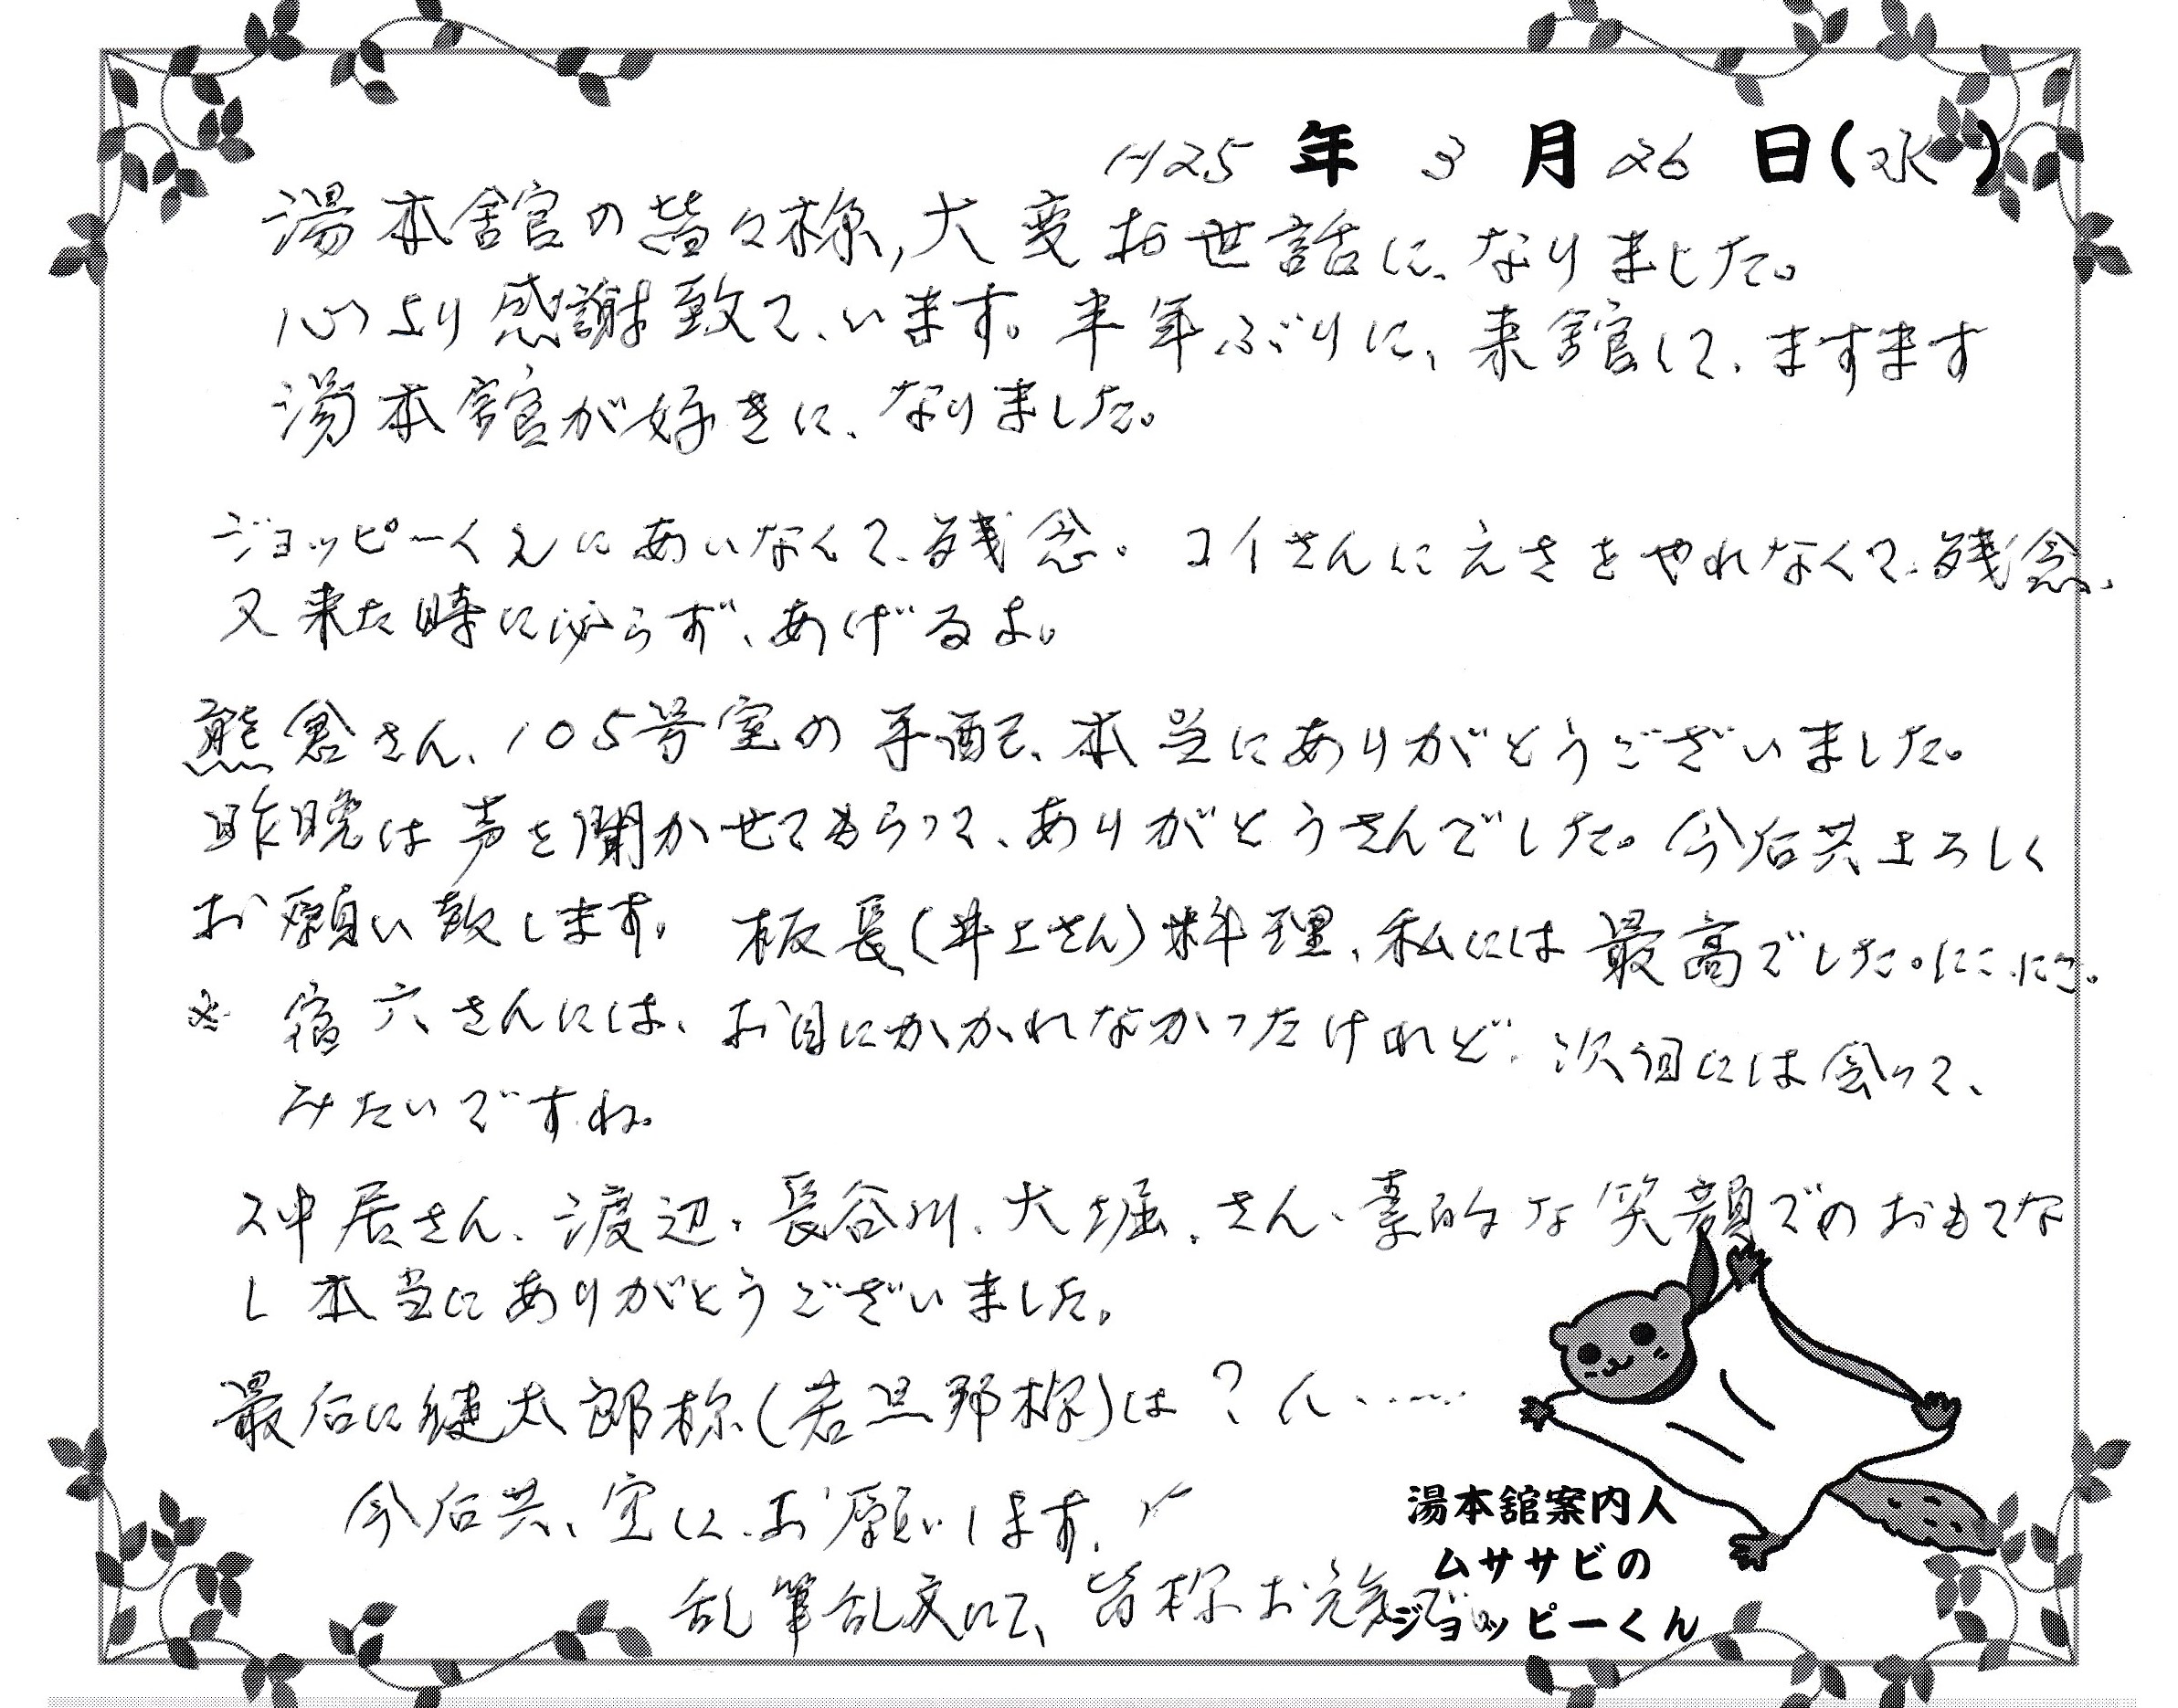 H25年3月26日(水)
湯本舘の皆々様,大変お世話に、なりました。
心より感謝致て、います。半年ぶりに、来舘して、ますます
湯本舘が好きに、なりました。
ジョッピーくんにあいなくて、残念。コイさんにえさをやれなくて、残念、
又来た時に必らず、あげるよ。
熊倉さん、105号室の手配、本当にありがとうございました。
昨晩は声を聞かせてもらって、ありがとうさんでした。今后共よろしく
お願い致します。板長(井上さん)料理、私には最高でした。にこにこ。
※宿六さんには、お目にかかれなかったけれど、次回には会って、
みたいですね。
仲居さん、渡辺、長谷川、大堀、さん、素的な笑顔でのおもてな
し本当にありがとうございました。
最后に健太郎様(若旦那様)は?ん……
今后共、宜しく、お願いします。
乱筆乱文にて、皆様お元気で。
湯本舘案内人
ムササビの
ジョッピーくん